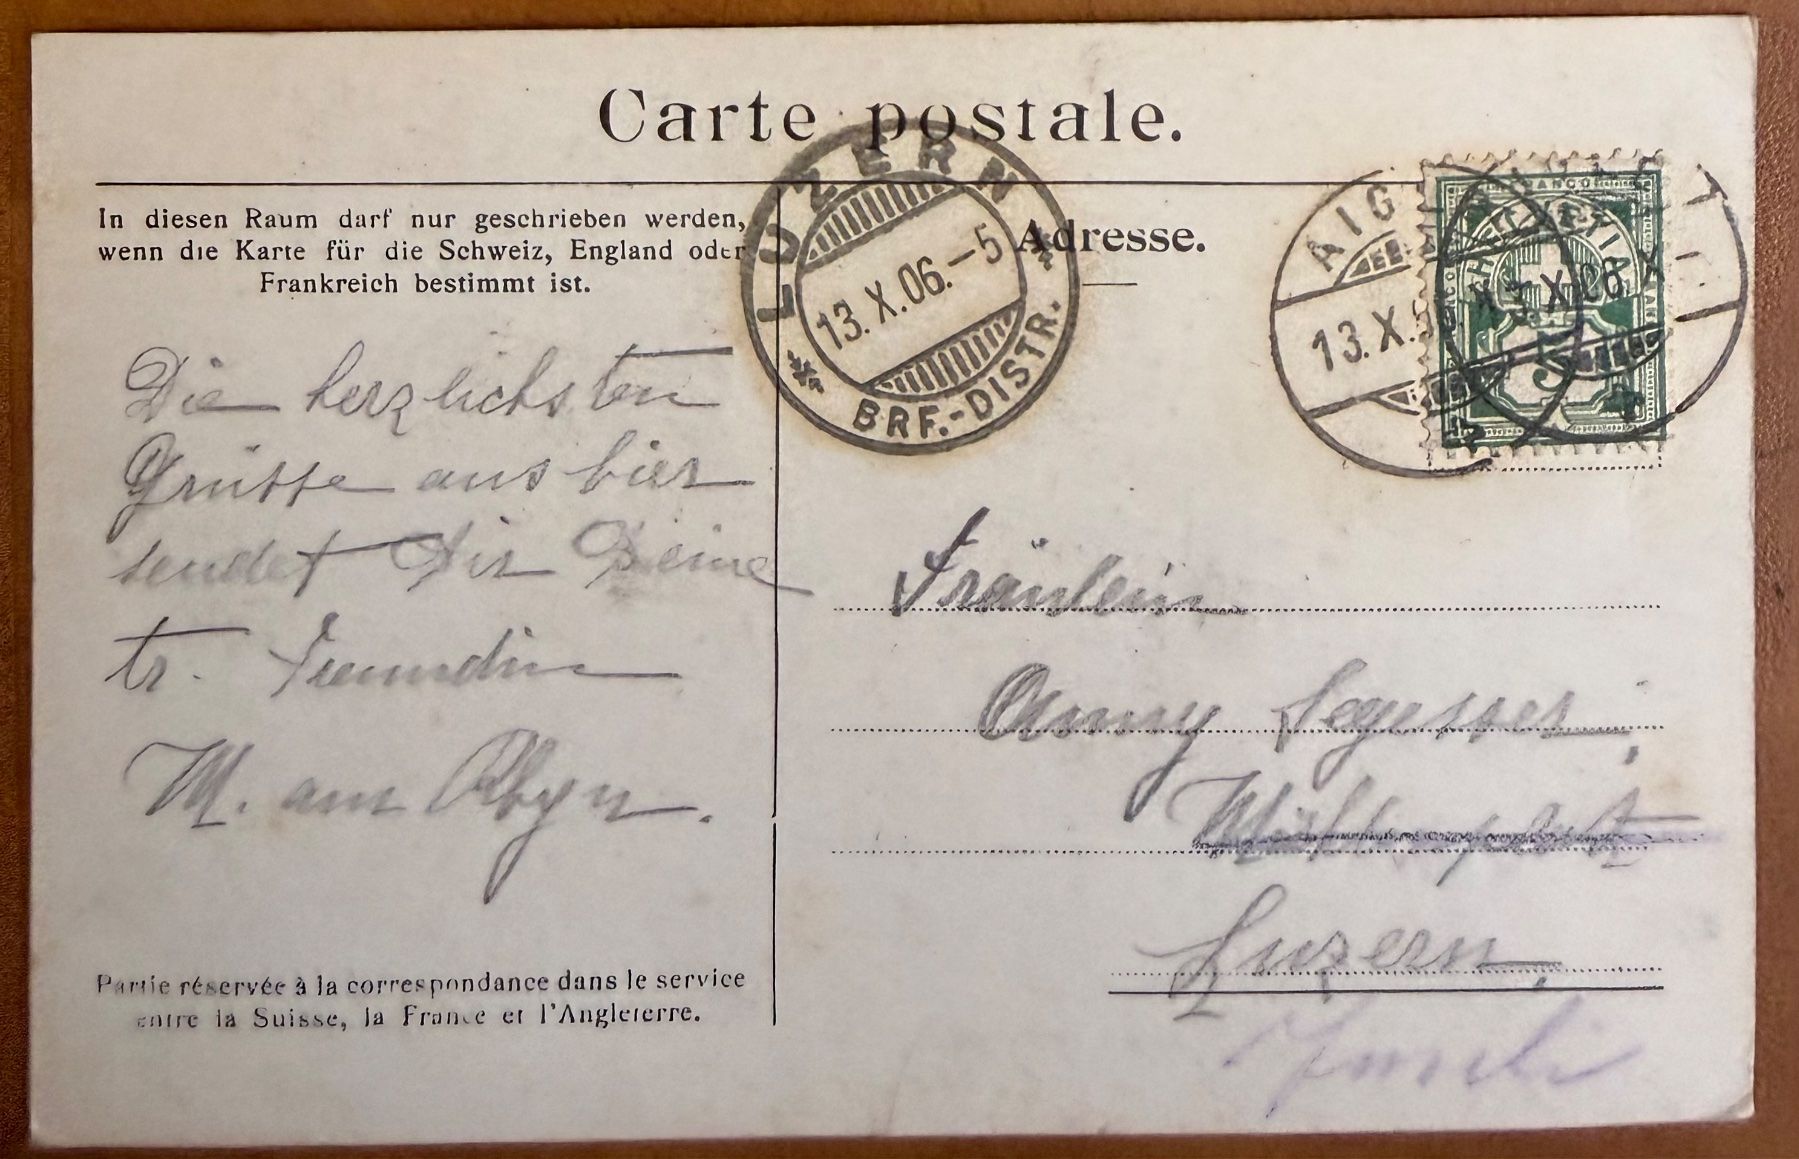 Carte postale.
LUZERN
13.X.06.-5
BRF.-DISTR.
AIG
13.X.
X.06
FRANCO
HELVETIA
5
In diesen Raum darf nur geschrieben werden,
wenn die Karte für die Schweiz, England oder
Frankreich bestimmt ist.
Adresse.
Die herzlichsten
Grüsse aus hier
sendet Dir Deine
tr. Freundin
M. am Rhyn.
Fräulein
Anny Segesser
Luzern
Partie réservée à la correspondance dans le service
entre la Suisse, la France et l'Angleterre.